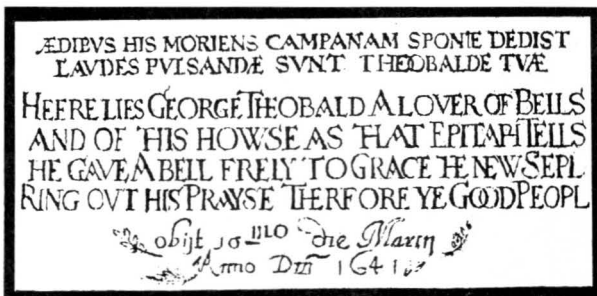 ÆDIBVS HIS MORIENS CAMPANAM SPONTE DEDIST
LAVDES PVLSANDÆ SVNT THEOBALDE TVÆ
HEERE LIES GEORGE THEOBALD A LOVER OF BELLS
AND OF THIS HOWSE AS THAT EPITAPH TELLS
HE GAVE A BELL FREELY TO GRACE THE NEW STEPL
RING OVT HIS PRAYSE THERFORE YE GOOD PEOPL
obijt 10mo die Martij
Anno Dni 1641